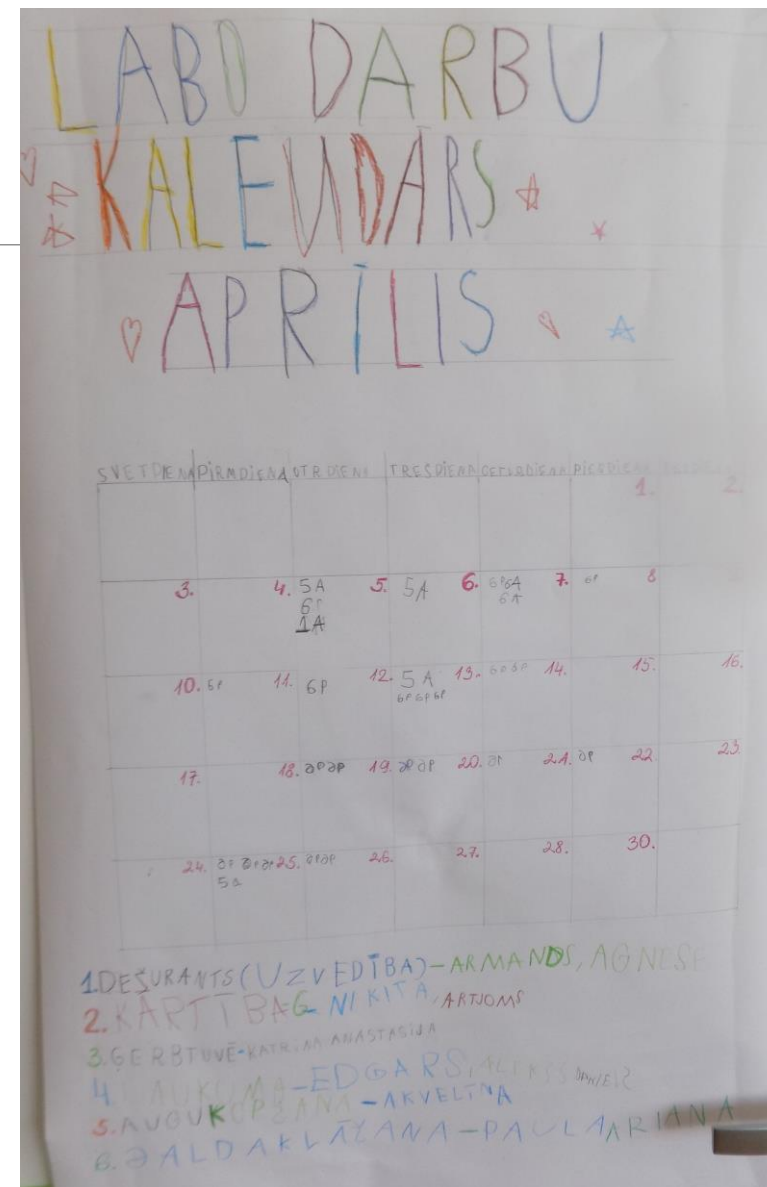 LABO DARBU
KALENDĀRS
APRĪLIS
SVETDIENA PIRMDIENA OTRDIENA TREŠDIENA CETURDIENA PIEKDIENA
1. 2.
3. 4. 5A 5. 5A 6. 7. 6P 8
6P 6A
1A
10. 6P 11. 6P 12. 5A 13. 6P 6P 14. 15. 16.
6P 6P 6P
17. 18. 19. 20. 21. 22 23
24. 25. 26. 27. 28. 30.
1. DEŠURANTS (UZVEDĪBA) - ARMANDS, AGNESE
2. KĀRTĪBA - NIKITA, ARTJOMS
3. ĢERBTUVĒ - KATRĪNA ANASTASIJA
4. EDGARS,
5. AUGU KOPŠANA - AKVELĪNA
6. GALDA KLĀŠANA - PAULA ARIANA